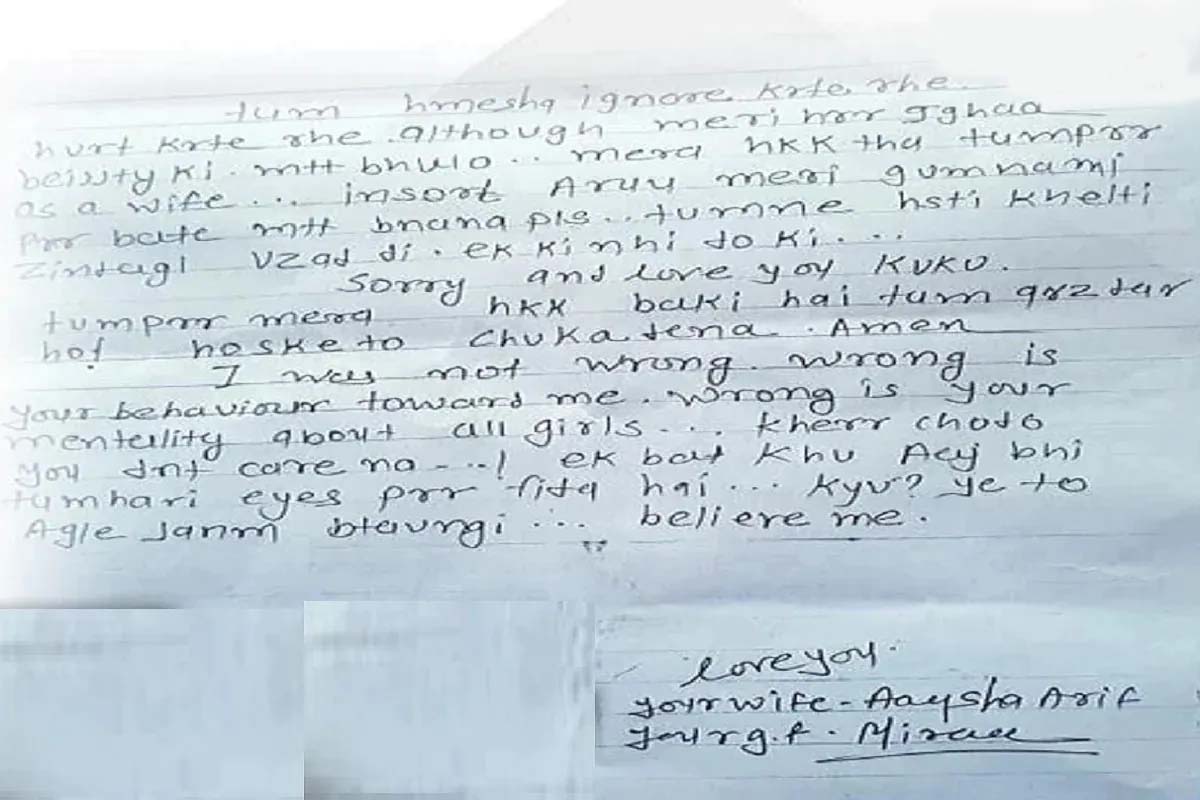 tum hmesha ignore krte rhe.
hurt krte rhe. although meri hrr Jghaa
beissty ki. mtt bhulo.. mera hkk tha tumprr
as a wife... insort Aruu meri gumnami
prr bate mtt bnana pls.. tumne hsti khelti
Zindagi uzad di. ek ki nhi do ki....
Sorry and love yoy KUKU.
tumprr mera hkk baki hai tum qrzdar
ho! hoske to chuka dena. Amen
I was not wrong. wrong is
your behaviour toward me. wrong is your
mentality about all girls... kherr chodo
you dnt care na - ..! ek bat khu Aaj bhi
tumhari eyes prr fida hai... kyu? ye to
Agle Janm btaungi... believe me.
love you.
your wife - Aaysha Arif
your g.f.